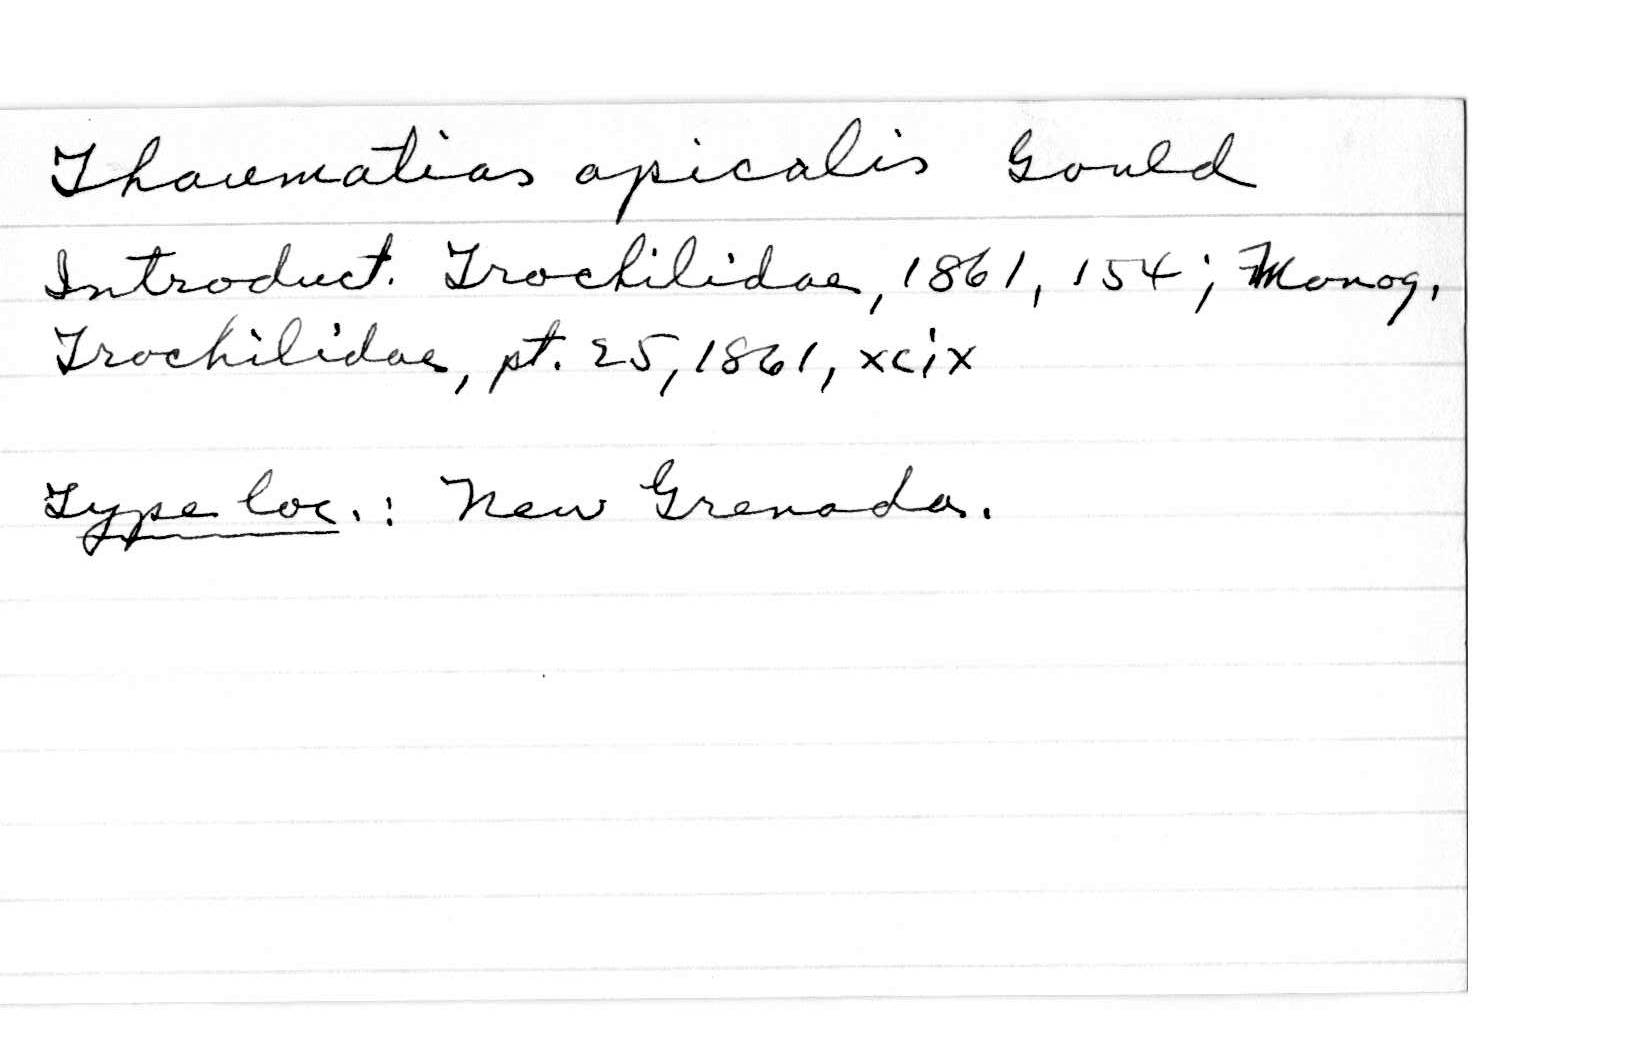 Thaumatias apicalis Gould
Introduct. Trochilidae, 1861, 154; Monog.
Trochilidae, pt. 25, 1861, xcix
Type loc.: New Grenada.